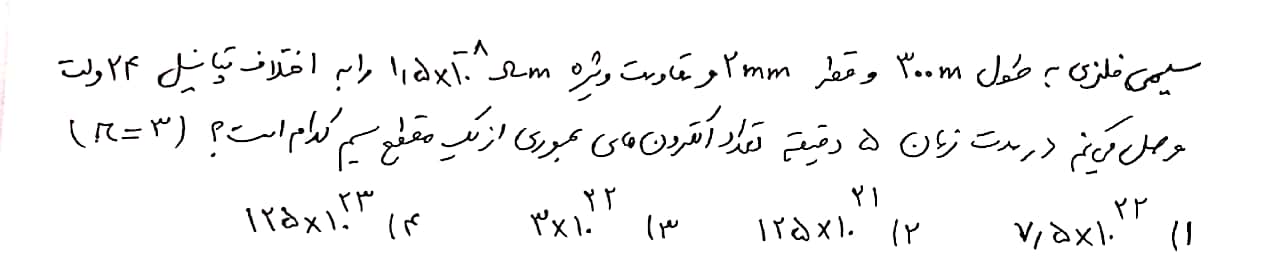 سیمی فلزی به طول ۳۰۰m و قطر ۲mm و مقاومت ویژه ۱٫۵×۱۰⁻⁸ Ωm را به اختلاف پتانسیل ۲۴ ولت
وصل می‌کنیم در مدت زمان ۵ دقیقه تعداد الکترون‌های عبوری از یک مقطع سیم کدام است؟ (π=۳)
۱) ۷٫۵×۱۰²² ۲) ۱۲۵×۱۰²¹ ۳) ۳×۱۰²² ۴) ۱۲۵×۱۰²³